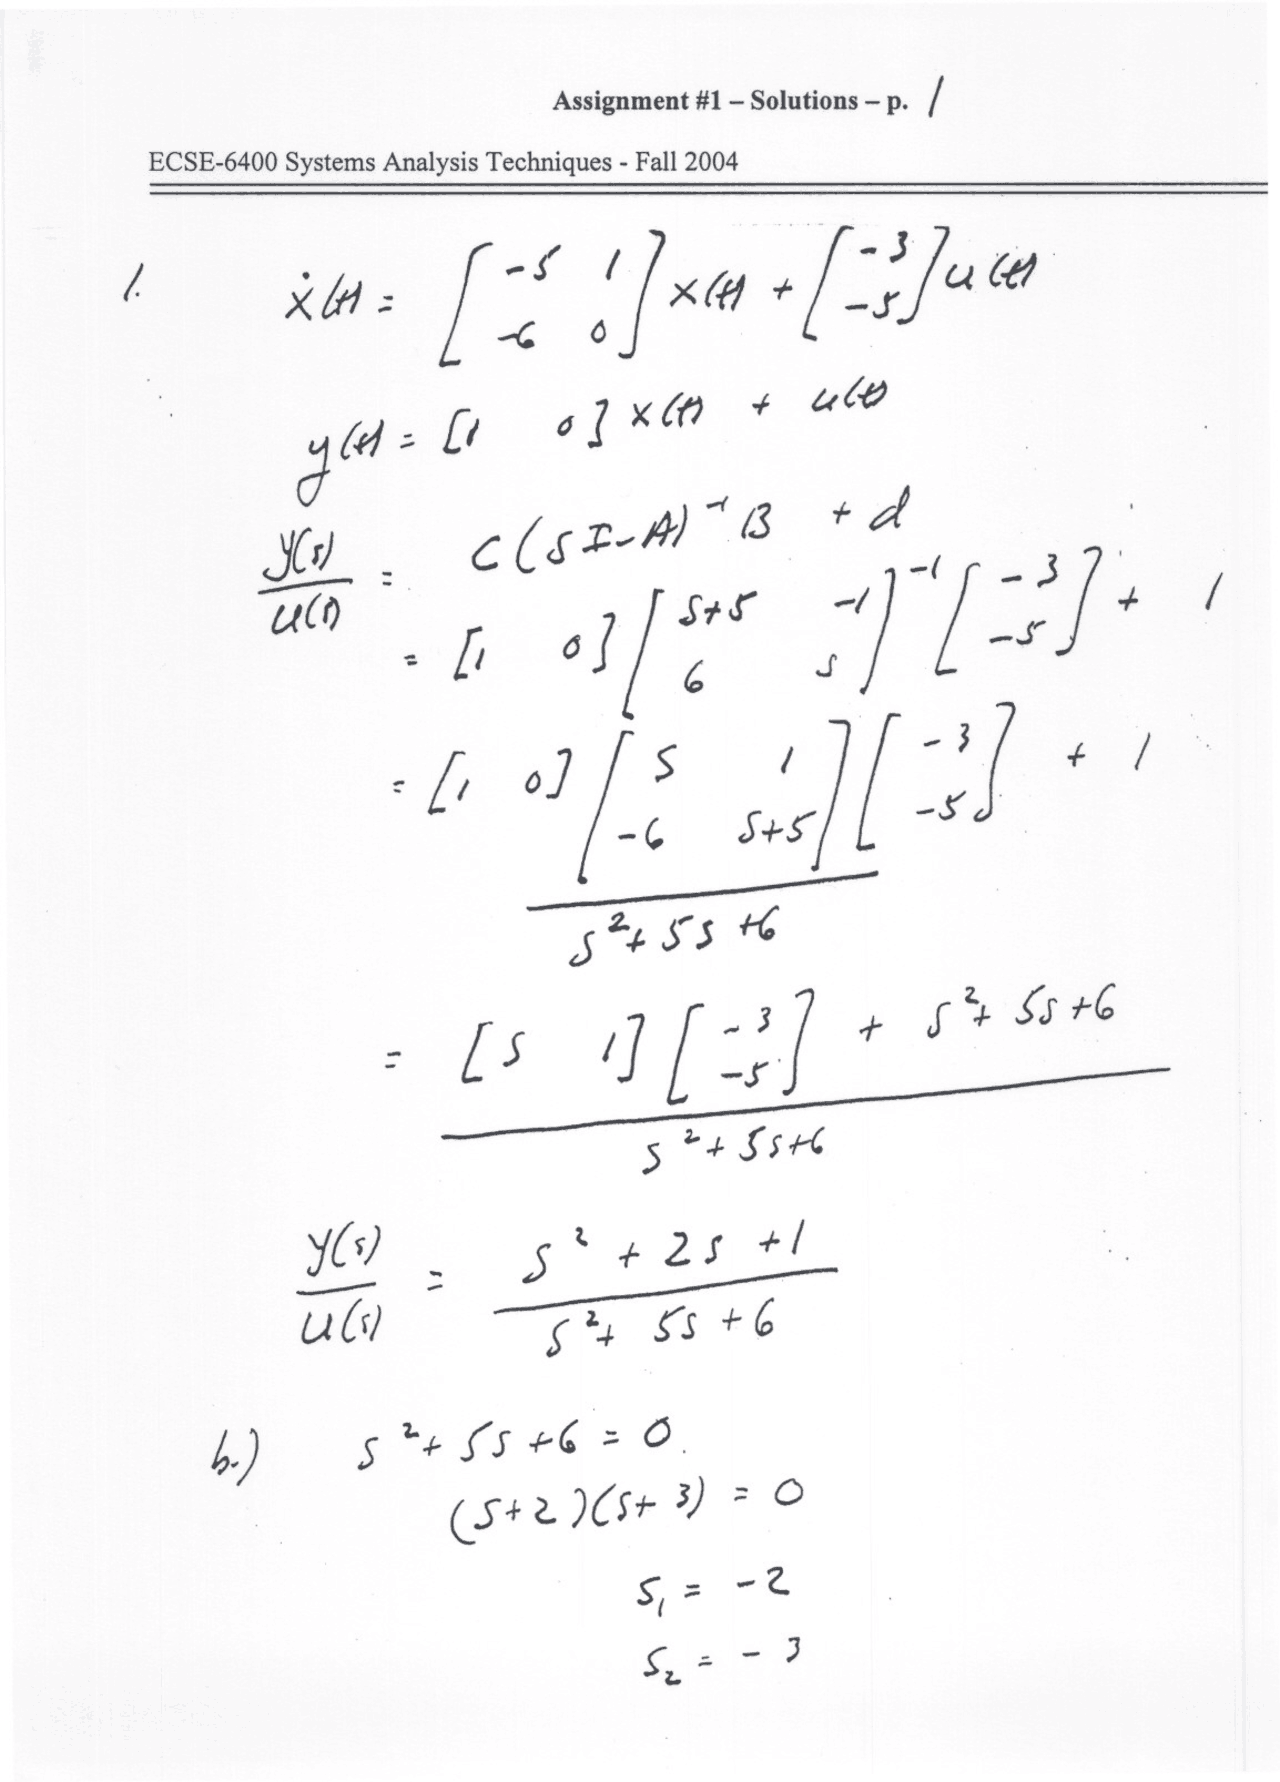 Assignment #1 – Solutions – p. 1
ECSE-6400 Systems Analysis Techniques - Fall 2004
1. ẋ(t) = [-5 1; -6 0] x(t) + [-3; -5] u(t)
y(t) = [1 0] x(t) + u(t)
y(s)/u(s) = C(SI-A)⁻¹B + d
= [1 0] [s+5 -1; 6 s]⁻¹ [-3; -5] + 1
= [1 0] [s 1; -6 s+5] [-3; -5] + 1
s² + 5s + 6
= [s 1] [-3; -5] + s² + 5s + 6
s² + 5s + 6
y(s)/u(s) = s² + 2s + 1 / s² + 5s + 6
b.) s² + 5s + 6 = 0
(s+2)(s+3) = 0
s₁ = -2
s₂ = -3